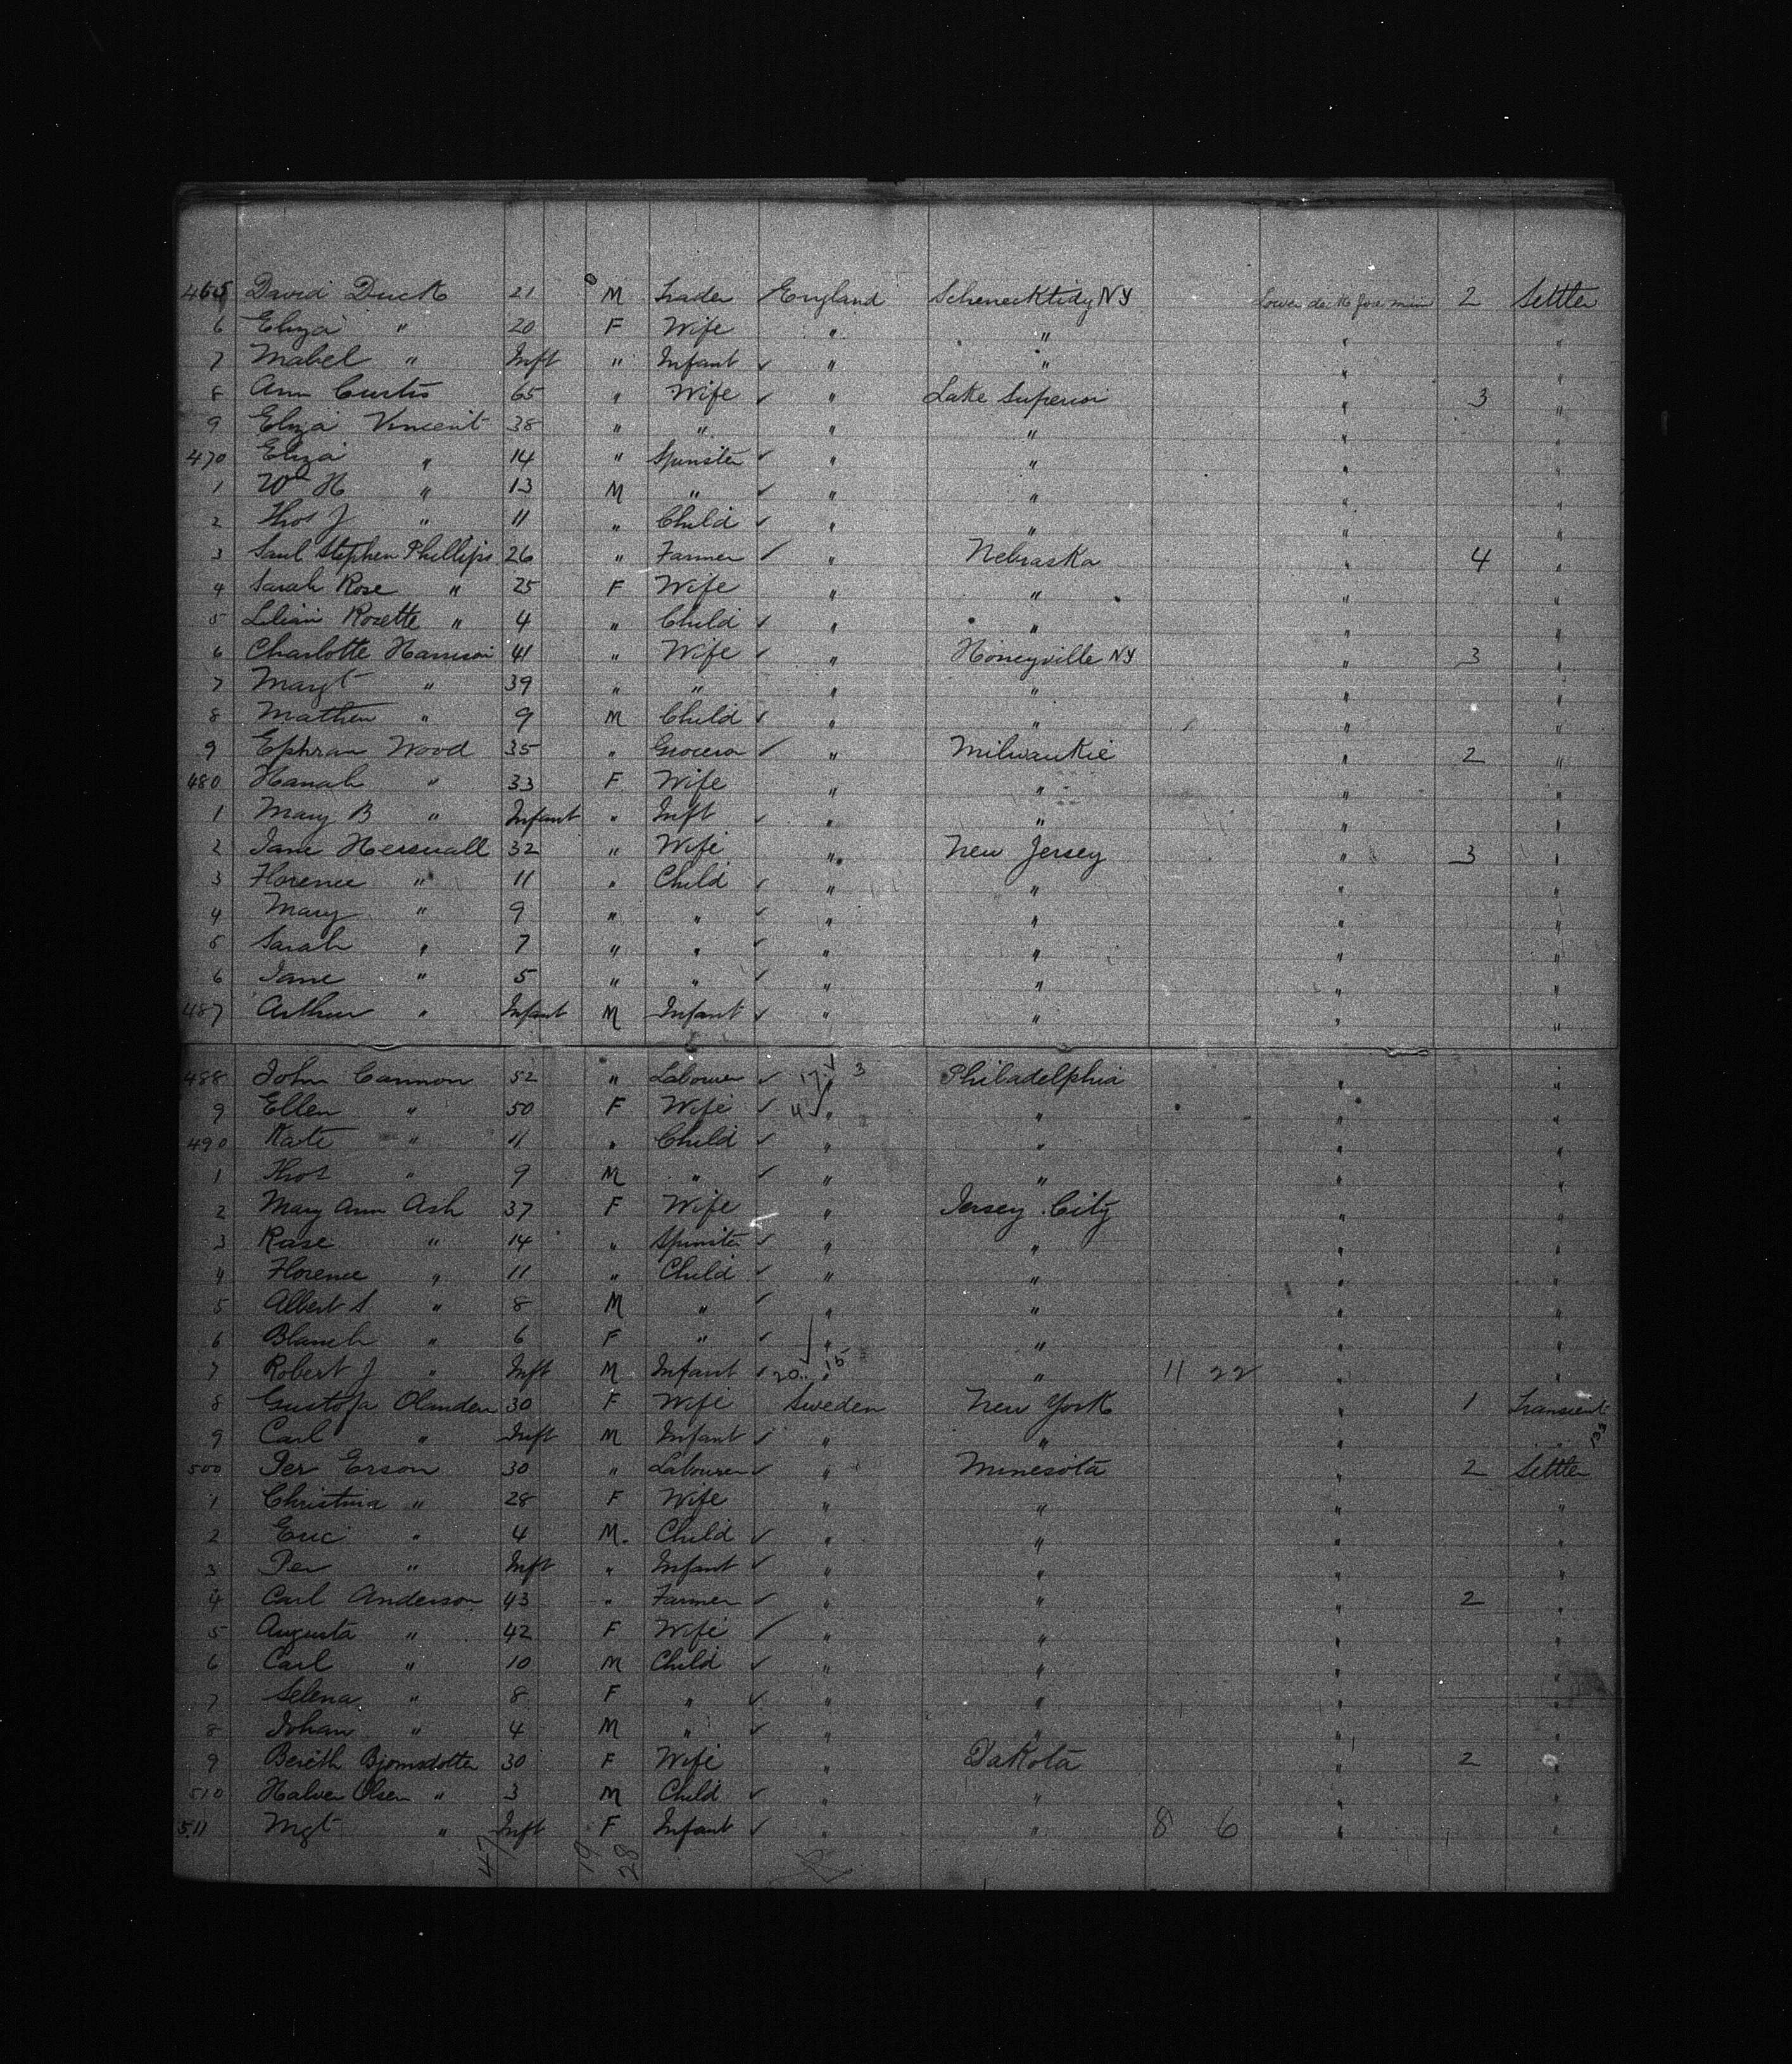 465 David Duck 21 M Trader England Schenecktidy NY 2 Settler
6 Eliza " 20 F Wife " " " "
7 Mabel " Inft " Infant " " " "
8 Ann Curtis 65 " Wife " Lake Superior " 3 "
9 Eliza Vincent 38 " " " " " "
470 Eliza " 14 " Spinster " " " "
1 Wm H " 13 M " " " " "
2 Thos J " 11 " Child " " " "
3 Saul Stephen Phillips 26 " Farmer " Nebraska " 4 "
4 Sarah Rose " 25 F Wife " " " "
5 Lilian Rosette " 4 " Child " " " "
6 Charlotte Harrison 41 " Wife " Honeyville NY " 3 "
7 Margt " 39 " " " " " "
8 Mathew " 9 M Child " " " "
9 Ephran Wood 35 " Grocer " Milwaukie " 2 "
480 Hanah " 33 F Wife " " " "
1 Mary B " Infant " Inft " " " "
2 Jane 32 " Wife " New Jersey " 3 "
3 Florence " 11 " Child " " " "
4 Mary " 9 " " " " " "
5 Sarah " 7 " " " " " "
6 Jane " 5 " " " " " "
487 Arthur " Infant M Infant " " " "
488 John Cannon 52 " Labourer 17 " 3 Philadelphia " "
9 Ellen " 50 F Wife 4 " " " "
490 Kate " 11 " Child " " " "
1 Thos " 9 M " " " " "
2 Mary Ann Ash 37 F Wife " Jersey City " "
3 Rose " 14 " Spinster " " " "
4 Florence " 11 " Child " " " "
5 Albert S " 8 M " " " " "
6 Blanch " 6 F " " " " "
7 Robert J " Inft M Infant 20 " 15 " 11 22 " "
8 Gustofa Olanden 30 F Wife Sweden New York " 1 Transient
9 Carl " Inft M Infant " " " "
500 Per Erson 30 " Labourer " Minesota " 2 Settler
1 Christina " 28 F Wife " " " "
2 Eric " 4 M. Child " " " "
3 Per " Inft " Infant " " " "
4 Carl Anderson 43 " Farmer " " " 2 "
5 Augusta " 42 F Wife " " " "
6 Carl " 10 M Child " " " "
7 Selena " 8 F " " " " "
8 Johan " 4 M " " " " "
9 Bereth Bjornsdotter 30 F Wife " Dakota " 2 "
510 Halver Olsen " 3 M Child " " " "
511 Mgt " Inft F Infant " " 8 6 " "
47 19 28